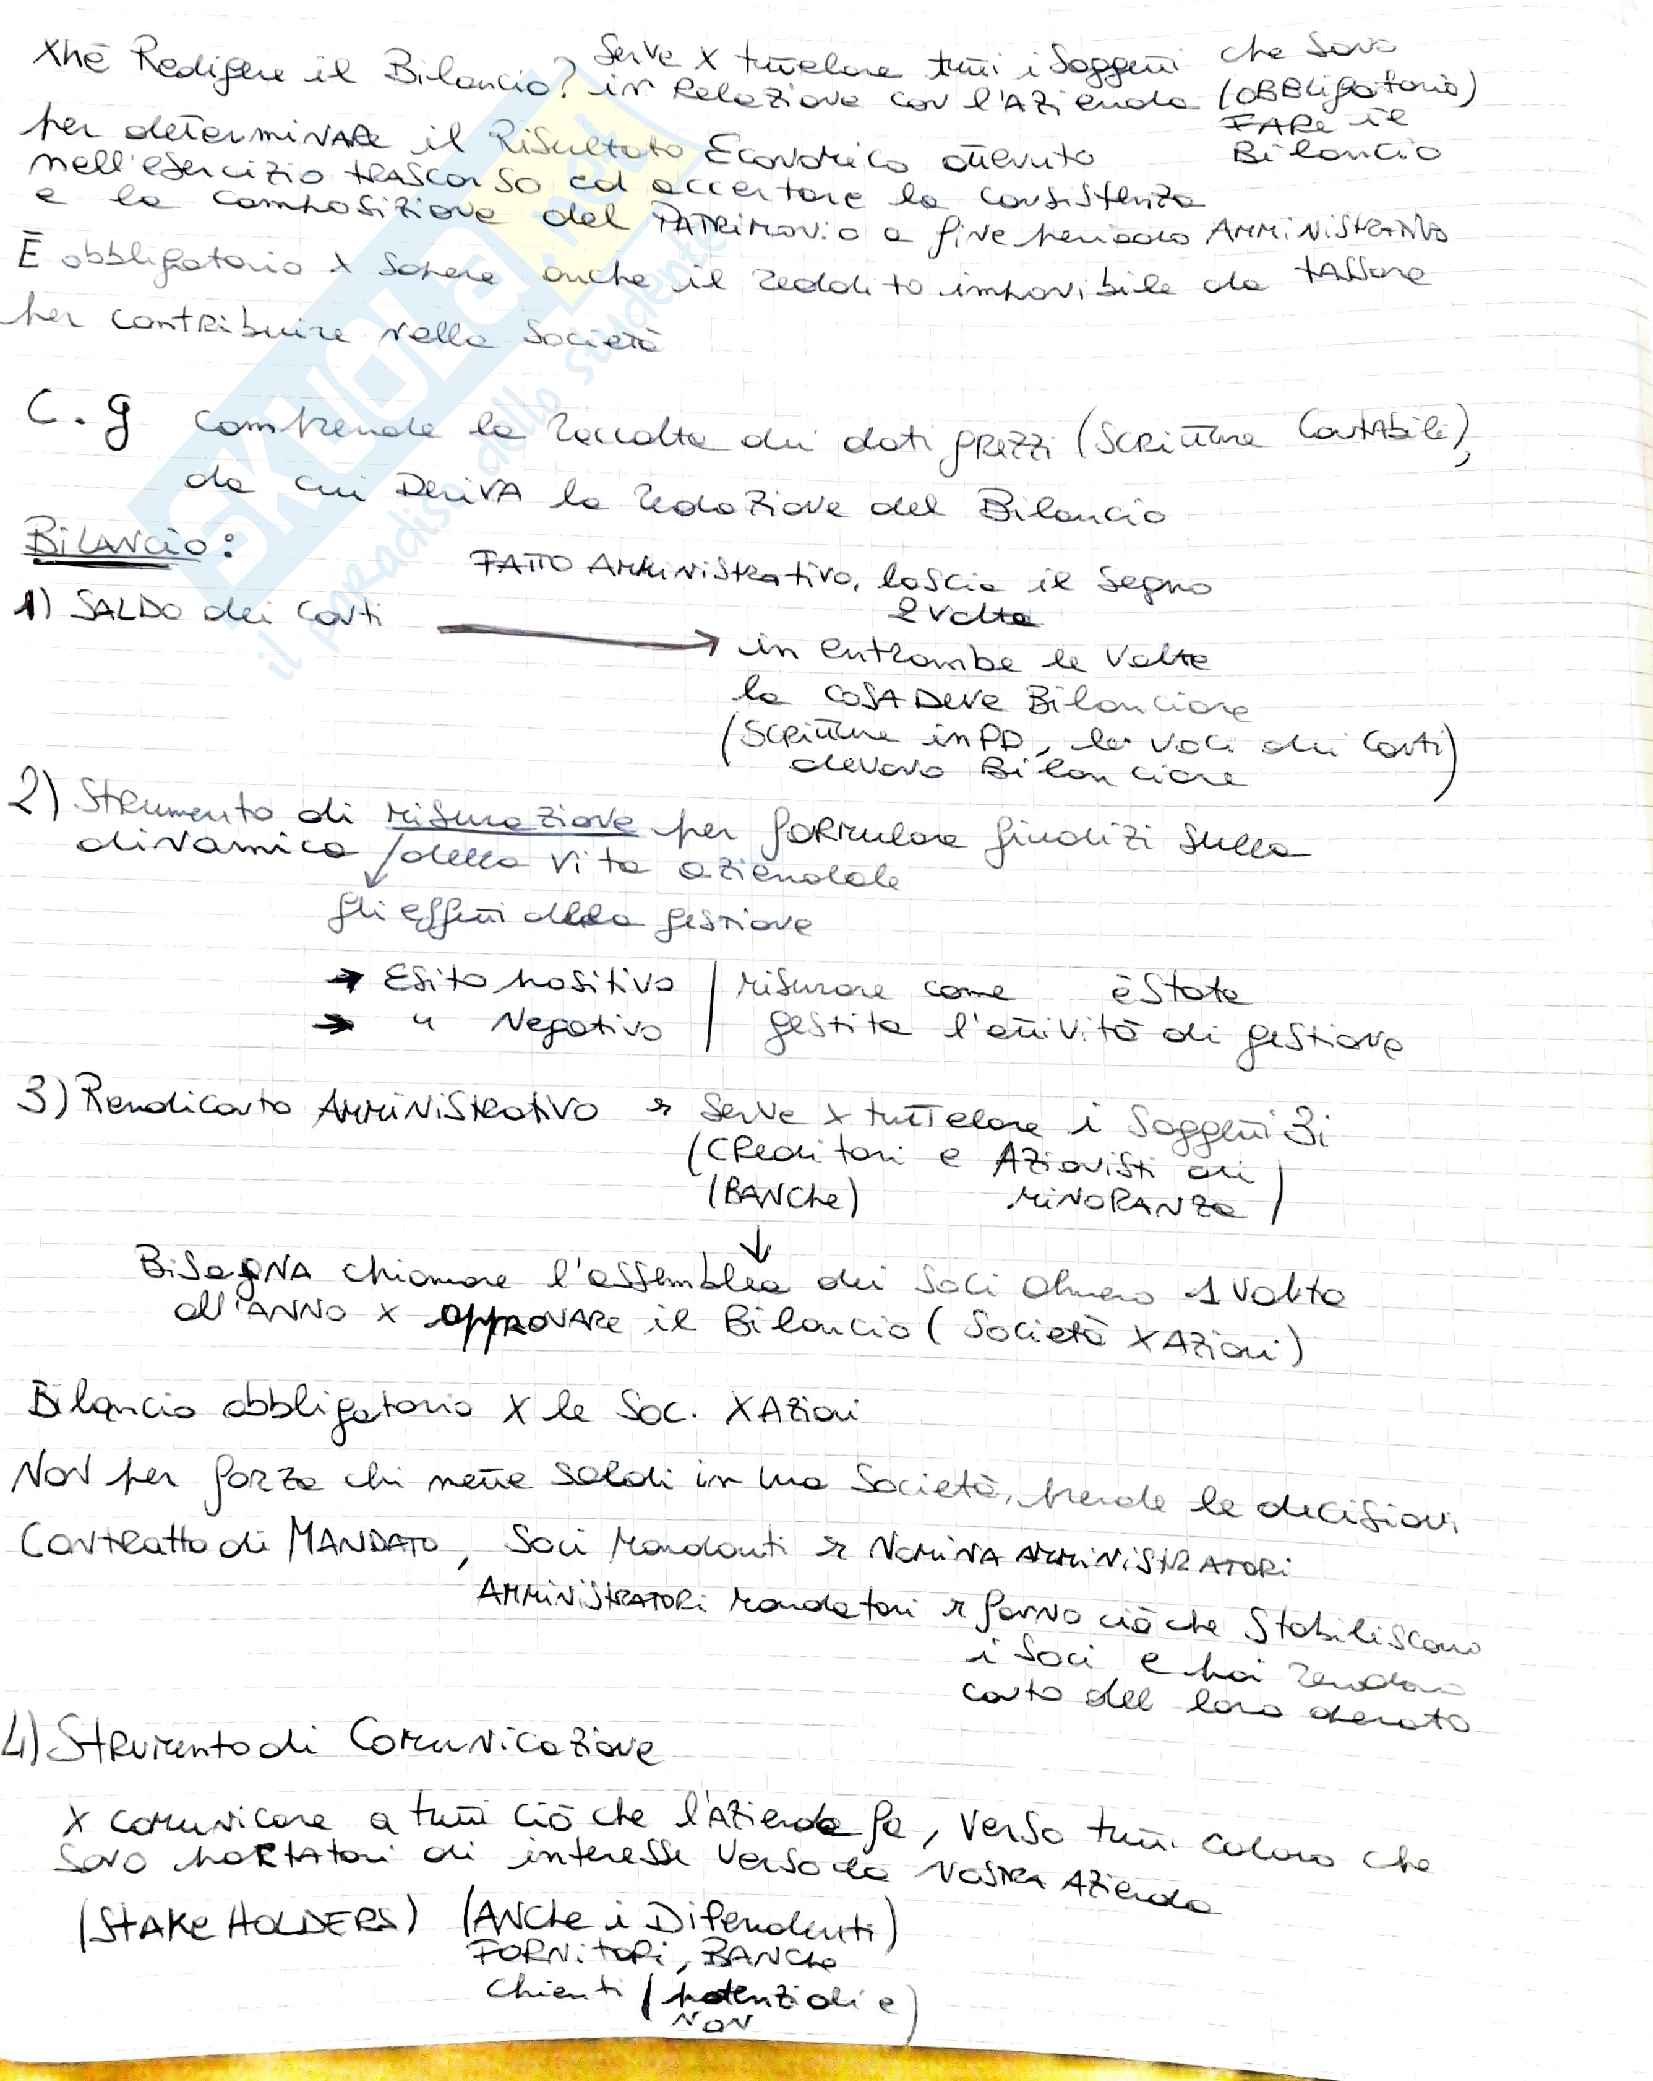 xhè Redigere il Bilancio? Serve x tuttelare tutti i soggetti che sono
in Relazione con l'Azienda (obbligatorio)
FARe il
Bilancio
per determinare il Risultato Economico ottenuto
nell'esercizio trascorso ed accertare la consistenza
e la composizione del Patrimonio a fine periodo Amministrativo
È obbligatorio x sapere anche il reddito imponibile da tassare
per contribuire nella società
C.g comprende la raccolta dei dati grezzi (scritture Contabili),
da cui Deriva la redazione del Bilancio
Bilancio:
FATTO Amministrativo, lascia il segno
2 volte
1) SALDO dei conti
in entrambe le volte
la cosa Deve Bilanciare
(Scritture in PD, le voci dei conti)
devono Bilanciare
2) Strumento di misurazione per formulare giudizi sulla
dinamica della vita aziendale
gli effetti della gestione
→ Esito positivo | misurare come è stata
→ " Negativo | gestita l'attività di gestione
3) Rendiconto Amministrativo → Serve x tuttelare i soggetti 3i
(Creditori e Azionisti di
(BANChe) MINORANZA)
↓
Bisogna chiamare l'assemblea dei soci almeno 1 volta
all'ANNO x approvare il Bilancio (Società x Azioni)
Bilancio obbligatorio x le Soc. x Azioni
Non per forza chi mette soldi in una società, prende le decisioni
Contratto di MANDATO, Soci Mandanti → NOMINA AMMINISTRATORI
AMMINISTRATORI Mandatari → fanno ciò che stabiliscono
i soci e poi rendono
conto del loro operato
4) Strumento di Comunicazione
x comunicare a tutti ciò che l'Azienda fa, verso tutti coloro che
sono portatori di interessi verso la nostra Azienda
(STAKE HOLDERS) (Anche i Dipendenti)
FORNitori, BANChe
Chienti (potenziali e
NON)
SKUOLA.net
il paradiso dello studente